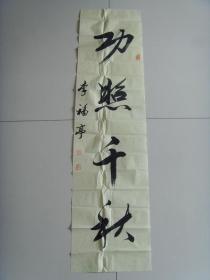 功照千秋
李福亭